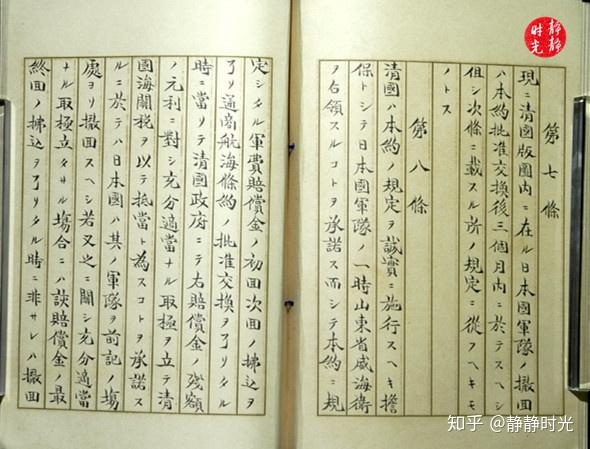 第七條
現ニ清國版圖内ニ在ル日本國軍隊ノ撤回
ハ本約批准交換後三個月内ニ於テスヘシ
但シ次條ニ載スル所ノ規定ニ從フヘキモ
ノトス
第八條
清國ハ本約ノ規定ヲ誠實ニ施行スヘキ擔
保トシテ日本國軍隊ノ一時山東省威海衛
ヲ占領スルコトヲ承諾ス而シテ本約ニ規
定シタル軍費賠償金ノ初回次回ノ拂込ヲ
了リ通商航海條約ノ批准交換ヲ了リタル
時ニ當リテ清國政府ニテ右賠償金ノ殘額
ノ元利ニ對シ充分適當ナル取極ヲ立テ清
國海關税ヲ以テ抵當ト為スコトヲ承諾ス
ルニ於テハ日本國ハ其ノ軍隊ヲ前記ノ塲
處ヨリ撤回スヘシ若又之ニ關シ充分適當
ナル取極立タサル塲合ニハ該賠償金ノ最
終回ノ拂込ヲ了リタル時ニ非サレハ撤回
静静时光
知乎 @静静时光